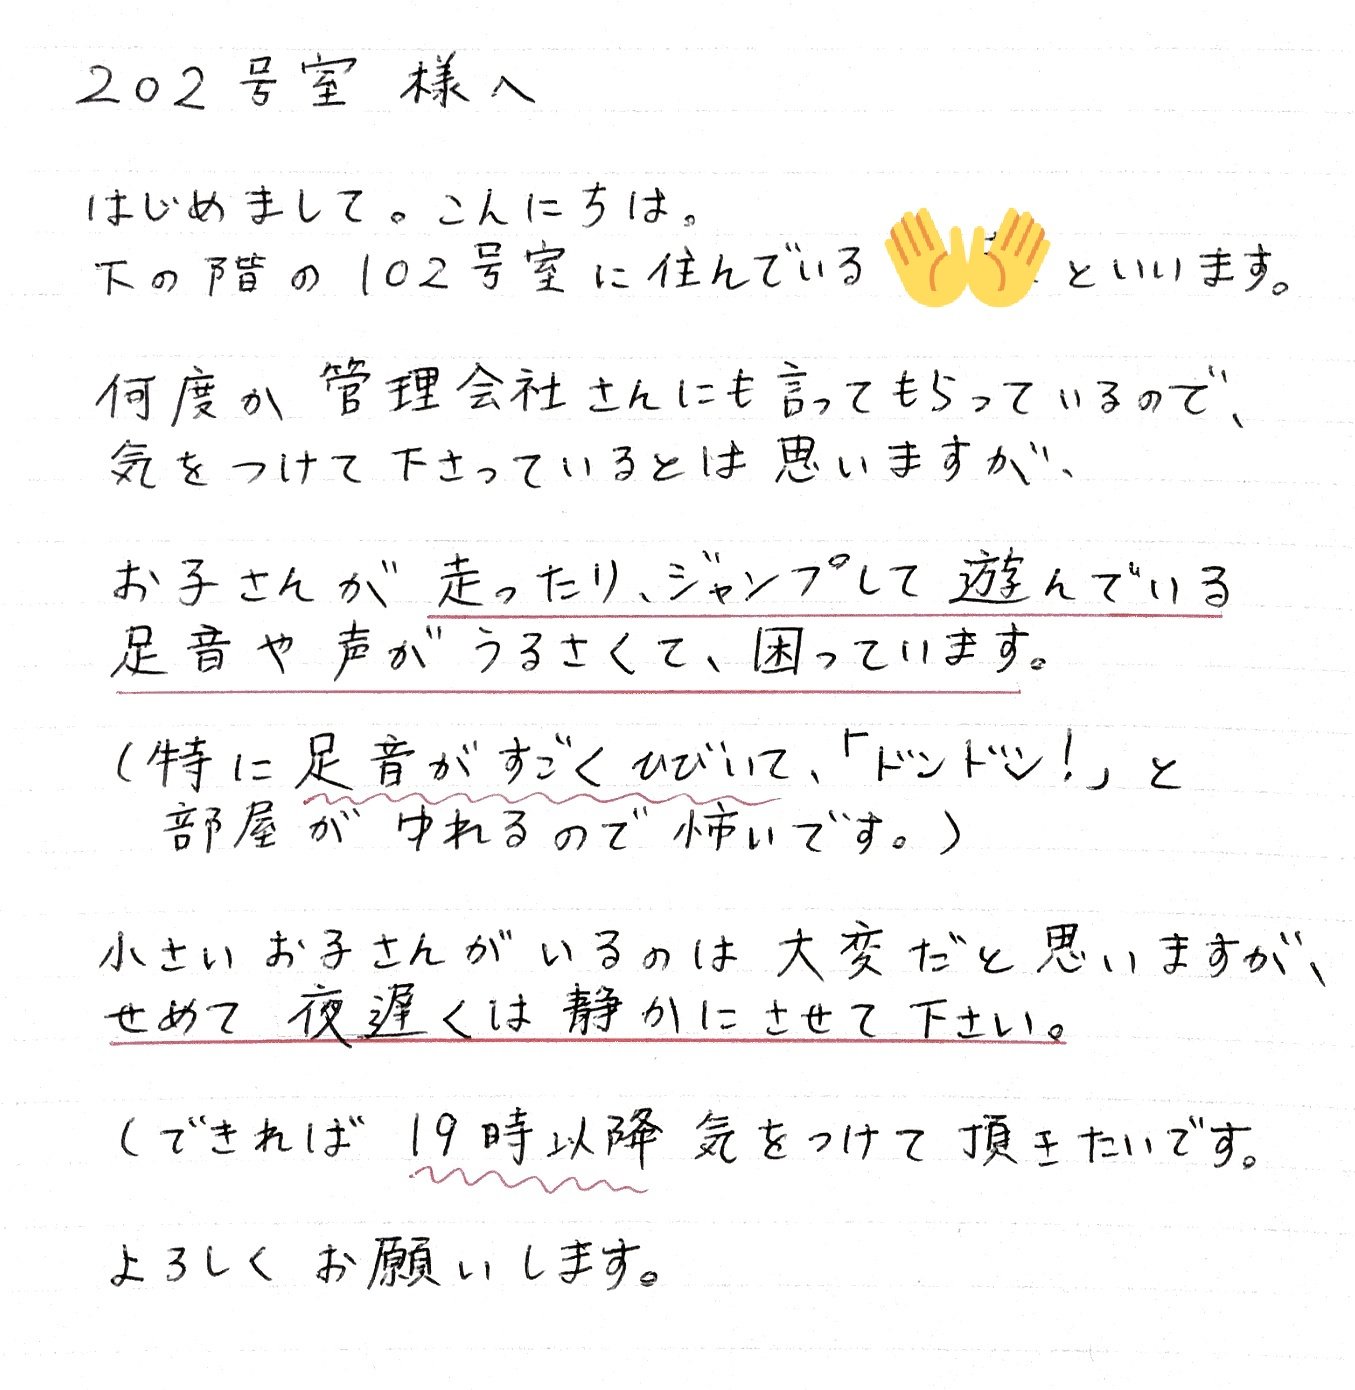 202号室 様へ
はじめまして。こんにちは。
下の階の102号室に住んでいる といいます。
何度か管理会社さんにも言ってもらっているので、
気をつけて下さっているとは思いますが、
お子さんが走ったり、ジャンプして遊んでいる
足音や声がうるさくて、困っています。
(特に足音がすごくひびいて、「ドンドン!」と
部屋がゆれるので怖いです。)
小さいお子さんがいるのは大変だと思いますが、
せめて夜遅くは静かにさせて下さい。
(できれば19時以降気をつけて頂きたいです。
よろしくお願いします。